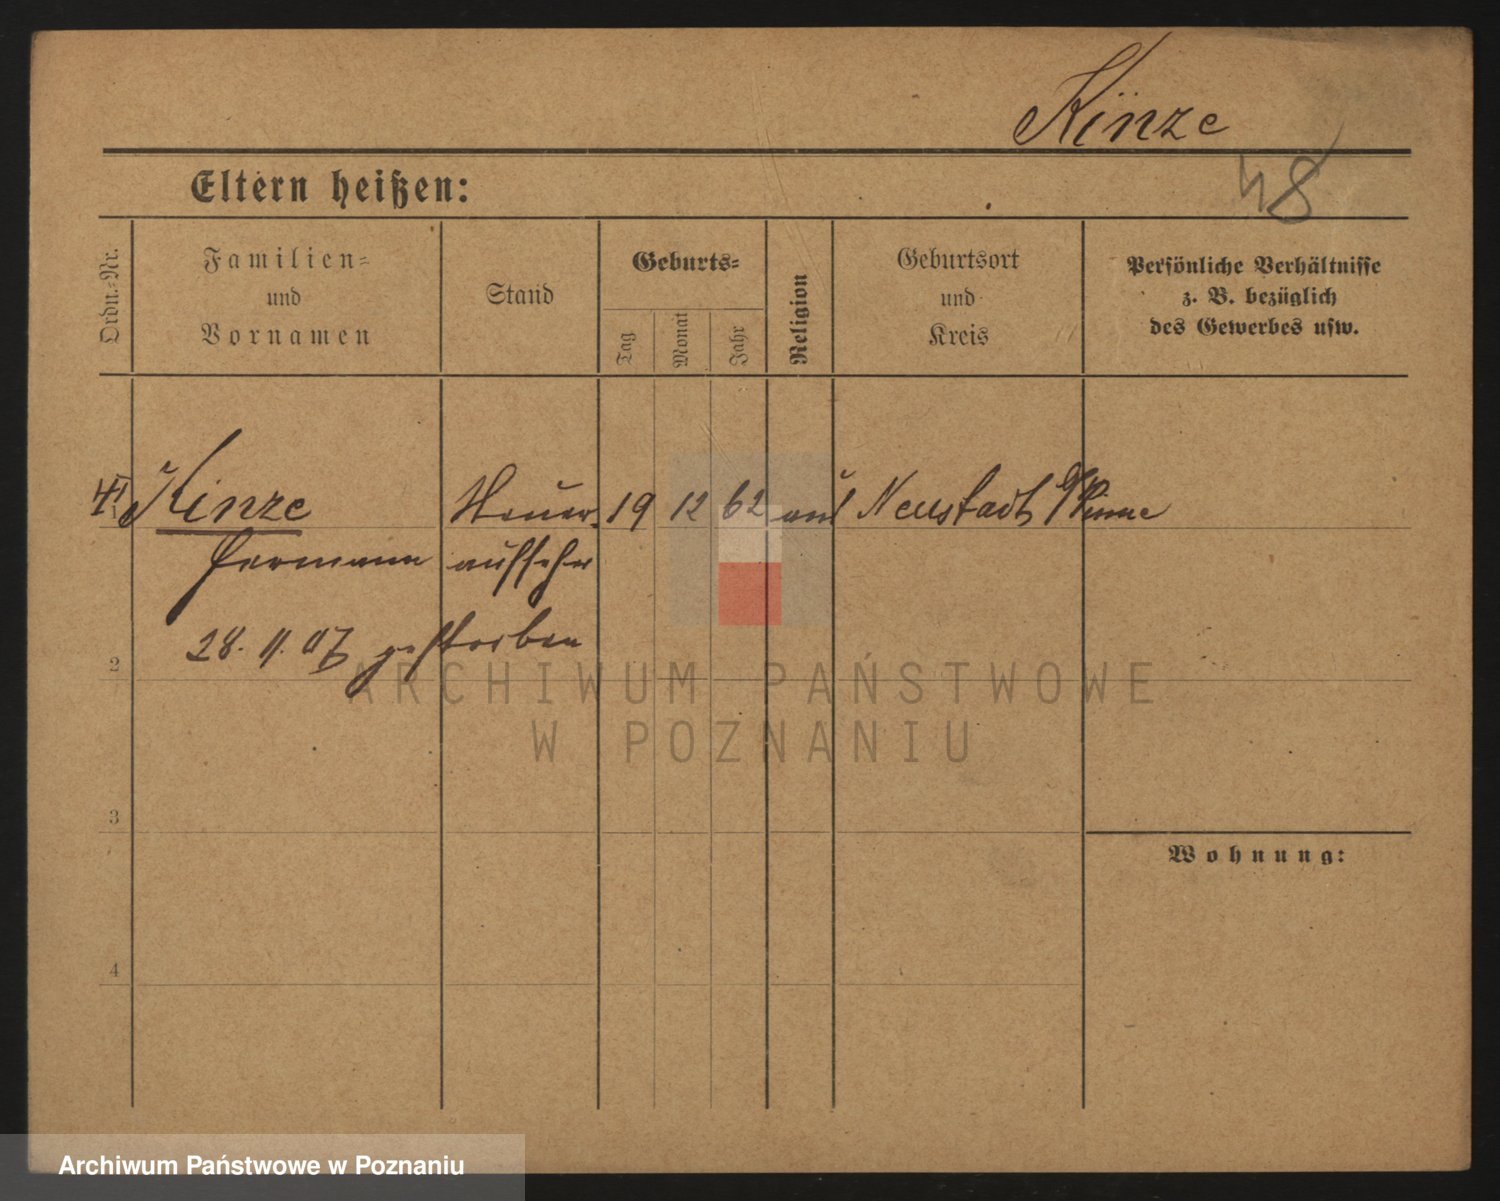 Kinze
48
Eltern heißen:
Ordn.-Nr.
Familien-
und
Vornamen
Stand
Geburts-
Tag
Monat
Jahr
Religion
Geburtsort
und
Kreis
Persönliche Verhältnisse
z. B. bezüglich
des Gewerbes usw.
1 Kinze 19 12 62 Neustadt Pinne
Hermann aufseher
28. 11. 07 gestorben
2
3
4
Wohnung:
ARCHIWUM PAŃSTWOWE
W POZNANIU
Archiwum Państwowe w Poznaniu